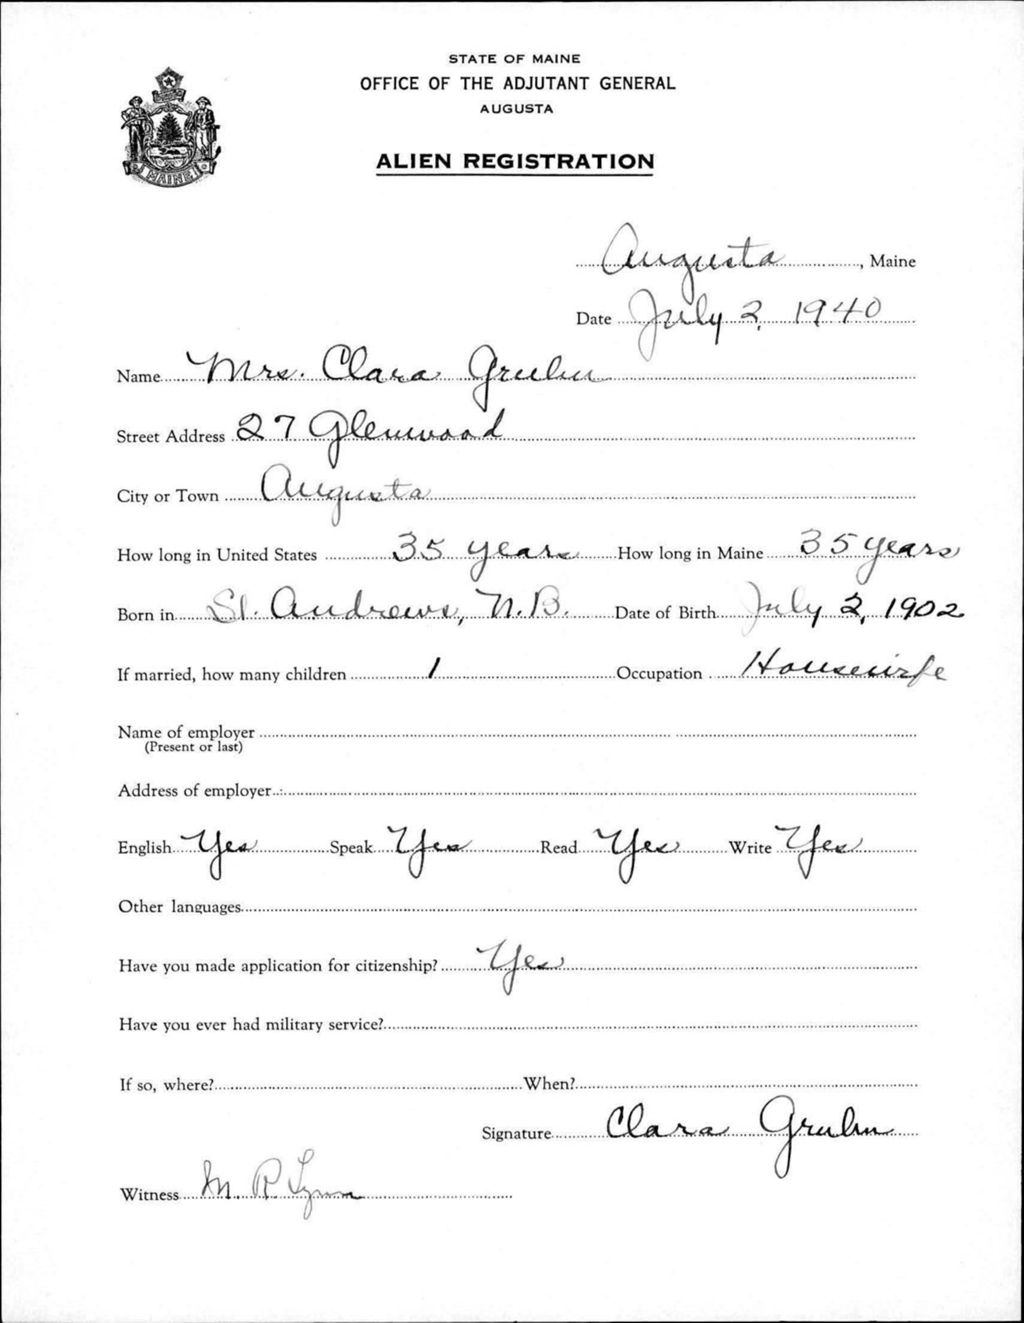 STATE OF MAINE
OFFICE OF THE ADJUTANT GENERAL
AUGUSTA
MAINE
ALIEN REGISTRATION
Augusta, Maine
Date July 2, 1940
Name Mrs. Clara
Street Address 27 Glenwood
City or Town Augusta
How long in United States 35 years How long in Maine 35 years
Born in St. Andrews, N.B. Date of Birth July 2, 1902
If married, how many children 1 Occupation Housewife
Name of employer
(Present or last)
Address of employer
English Yes Speak Yes Read Yes Write Yes
Other languages
Have you made application for citizenship? Yes
Have you ever had military service?
If so, where? When?
Signature Clara
Witness M. R. Lynn